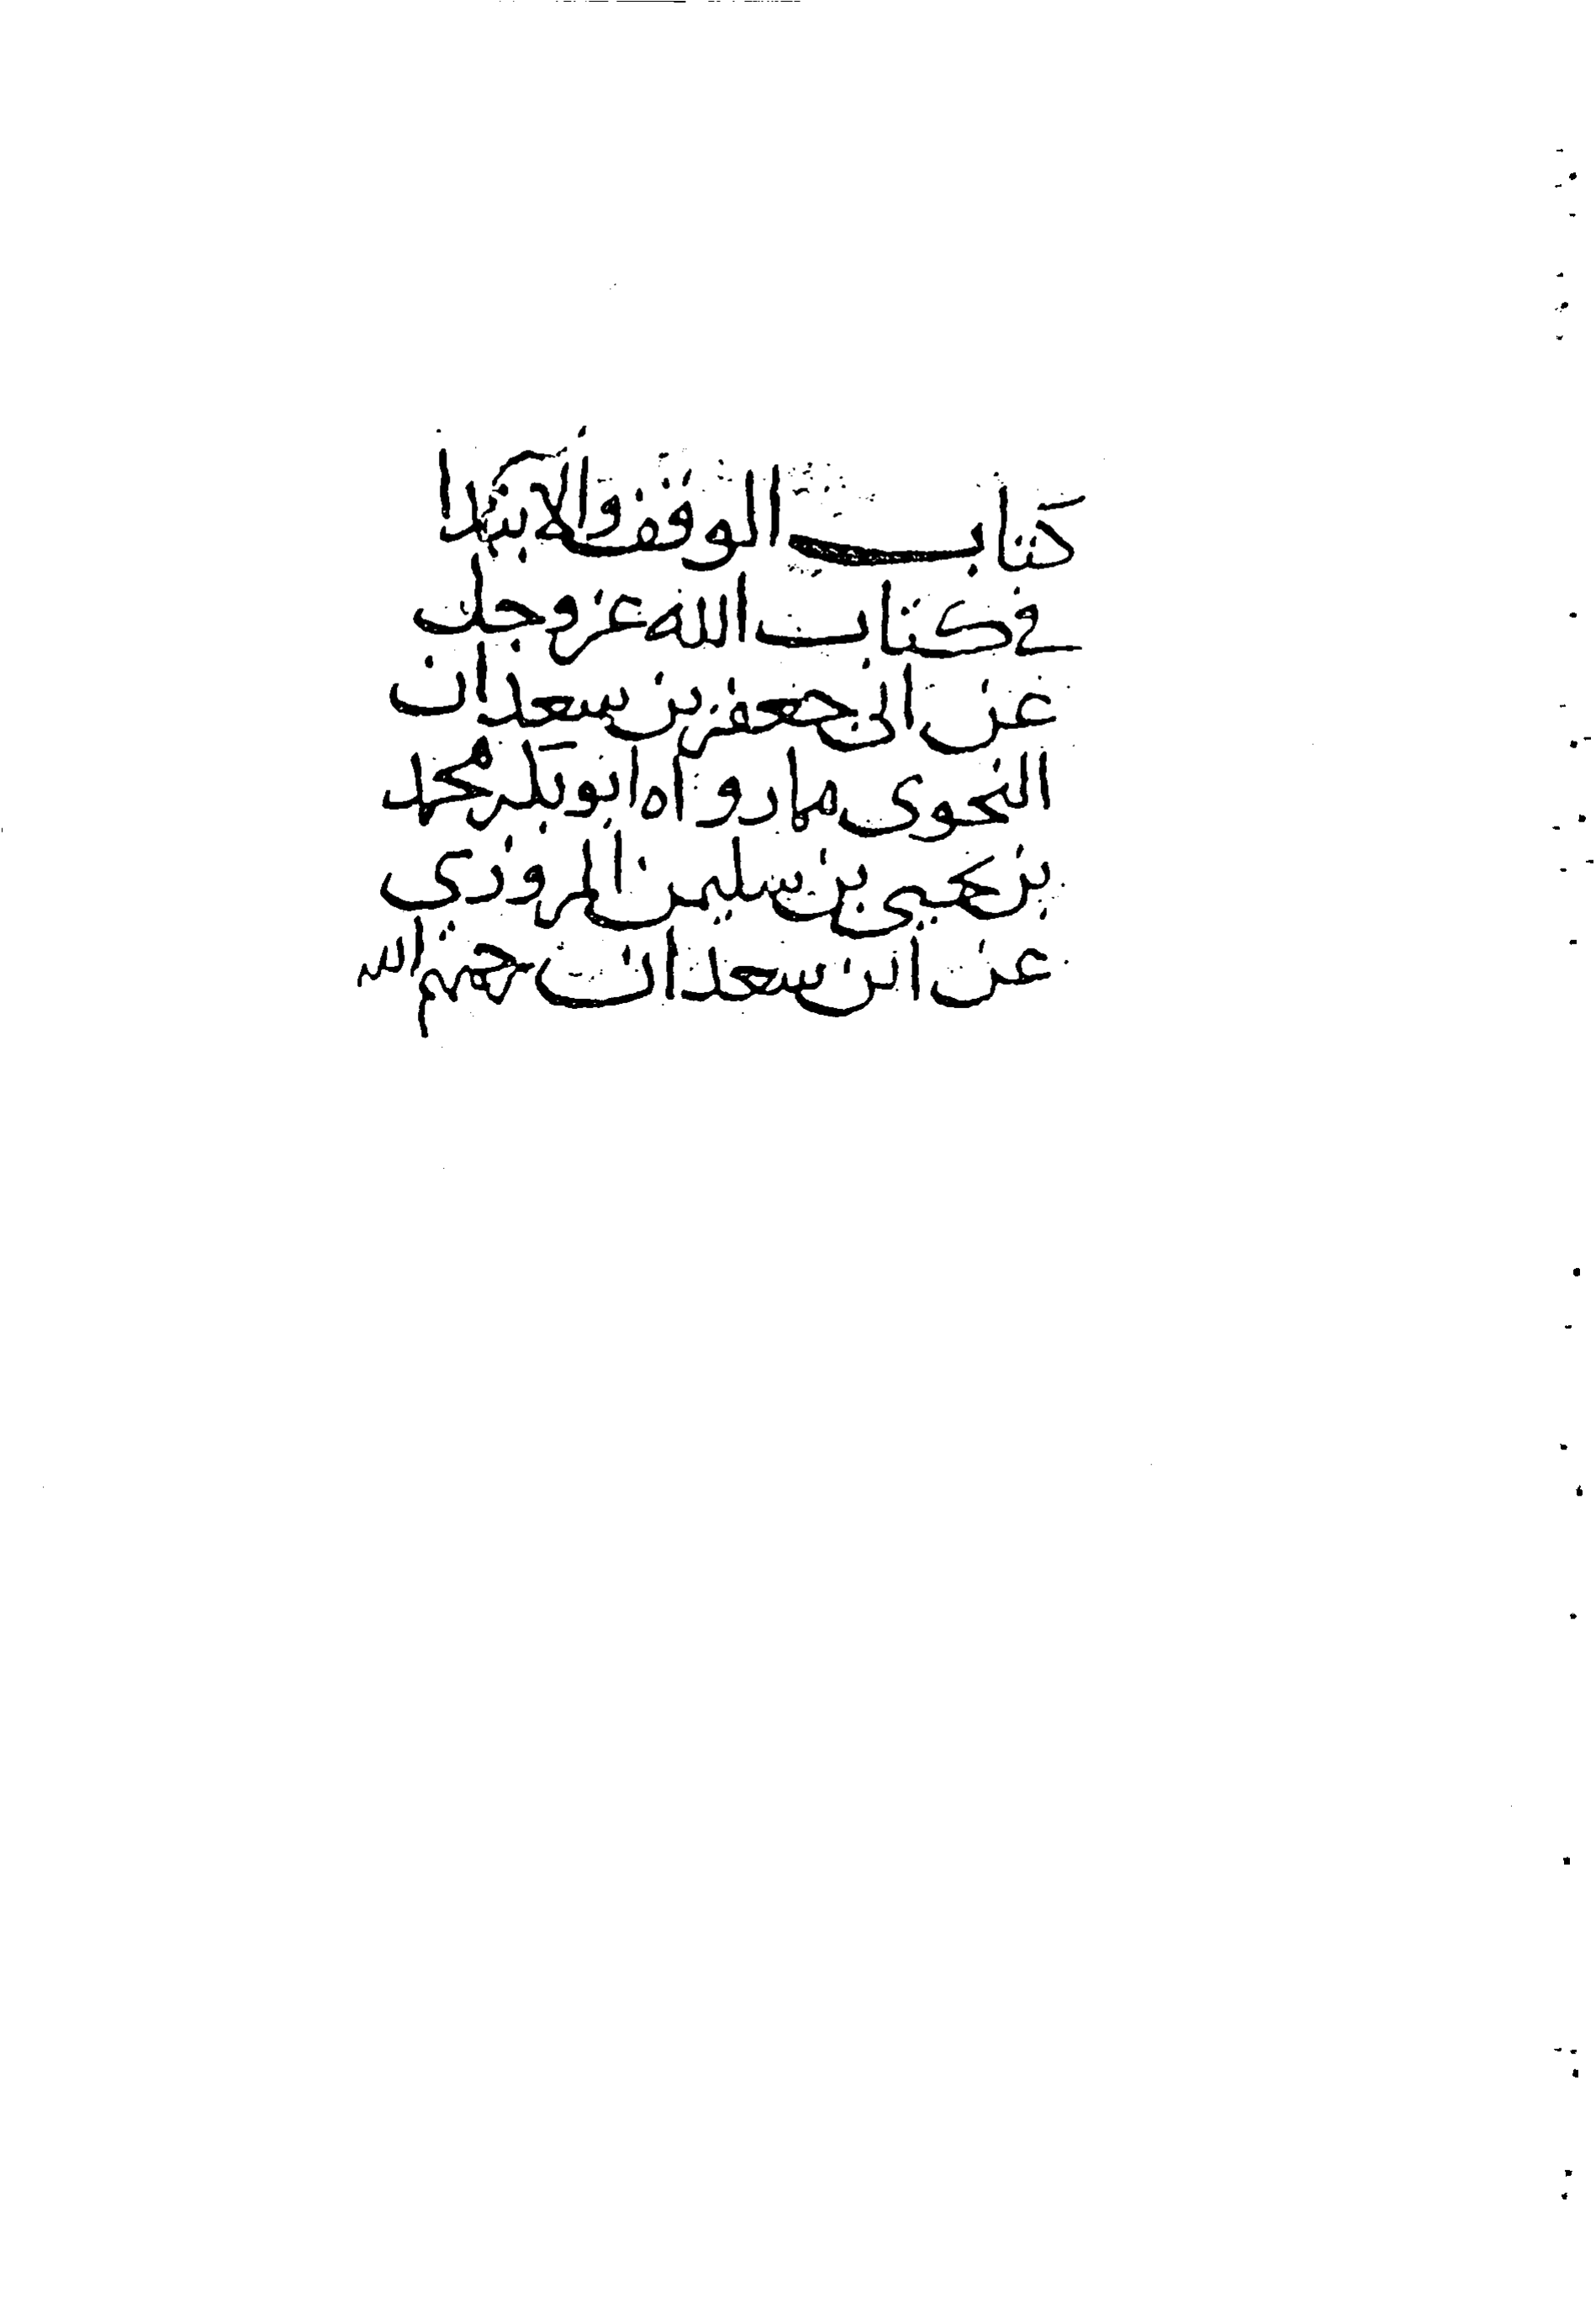 كتاب الوقف والابتدا
في كتاب الله عز وجل
عن ابي جعفر بن سعدان
النحوي مما رواه ابو بكر محمد
بن يحيى بن سليمن المروزي
عن ابن سعدان رحمهم الله